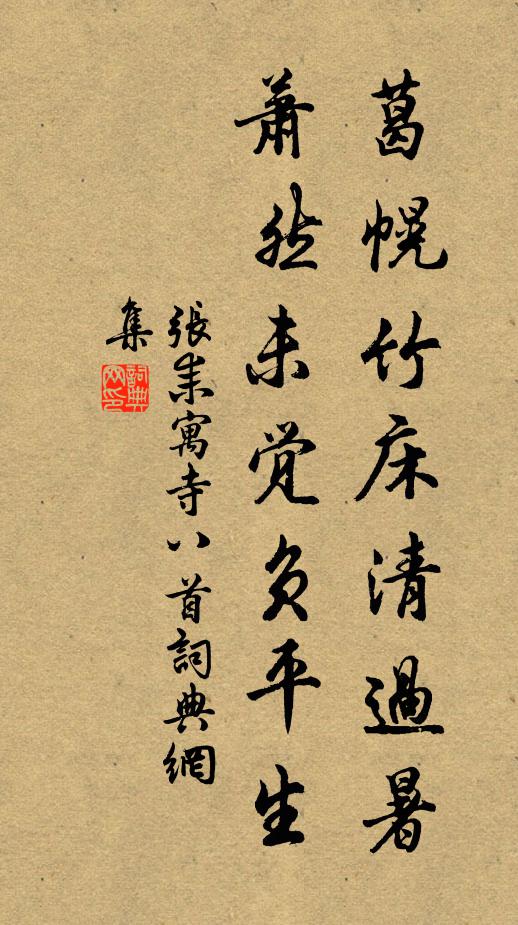 葛幌竹床清過暑
蕭然未觉負平生
張耒寓寺八首詞典網
集
詞典
网印